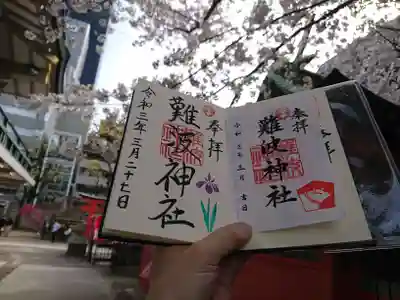 奉拝
難波神社
令和三年三月二十七日
奉拝
難波神社
令和三年三月